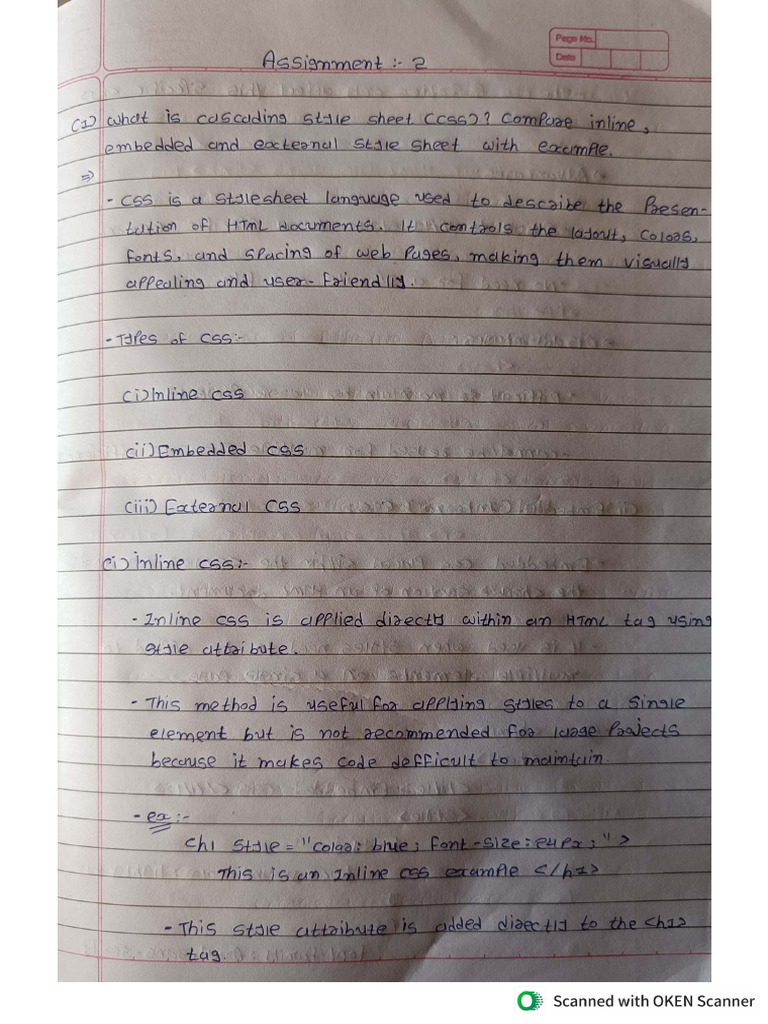 Page No.
Date
Assignment :- 2
(1) What is cascading style sheet (CSS)? Compare inline,
embedded and external style sheet with example.
⇒
- CSS is a stylesheet language used to describe the Presen-
tation of HTML documents. It controls the layout, Colors,
fonts, and spacing of web Pages, making them visually
appealing and user-friendly.
- Types of CSS:-
(i) Inline CSS
(ii) Embedded CSS
(iii) External CSS
(i) Inline CSS:-
- Inline CSS is applied directly within an HTML tag using
style attribute.
- This method is useful for applying styles to a single
element but is not recommended for large Projects
because it makes code defficult to maintain.
- ex:-
<h1 style="color: blue; font-size:24px;">
This is an Inline CSS example </h1>
- This style attribute is added directly to the <h1>
tag.
Scanned with OKEN Scanner